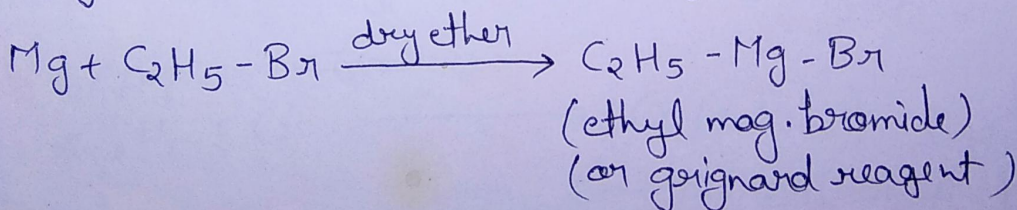 Mg + C2H5 - Br dry ether → C2H5 - Mg - Br
(ethyl mag. bromide)
(or grignard reagent)